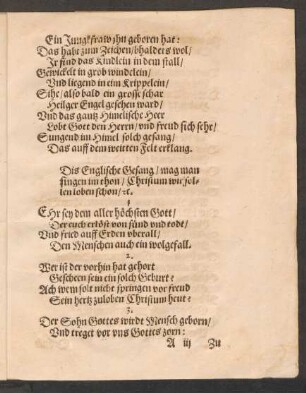 Ein Jungkfraw jhn geboren hat:
Das habt zum Zeichen/bhalders wol/
Jr find das Kindlein in dem stall/
Gewickelt in grob windelein/
Vnd liegend in eim Krippelein/
Sihe/also bald ein grosse schar
Heilger Engel gesehen ward/
Vnd das gantz Himelische Heer
Lobt Gott den Herrn/vnd frewd sich sehr/
Sungend im Himel solch gesang/
Das auff dem weitten Felt erklang.
Dis Englische Gesang/mag man
singen im thon/Christum wir sol-
len loben schon/ꝛc.
1.
EHr sey dem aller höchsten Gott/
Der euch erlöst von sünd vnd todt/
Vnd fried auff Erden vberall/
Den Menschen auch ein wolgefall.
2.
Wer ist der vorhin hat gehort
Geschehen sein ein solch Geburt?
Ach wem solt nicht springen vor frewd
Sein hertz zuloben Christum heut?
3.
Der Sohn Gottes wirdt Mensch geborn/
Vnd treget vor vns Gottes zorn:
A iij Zu